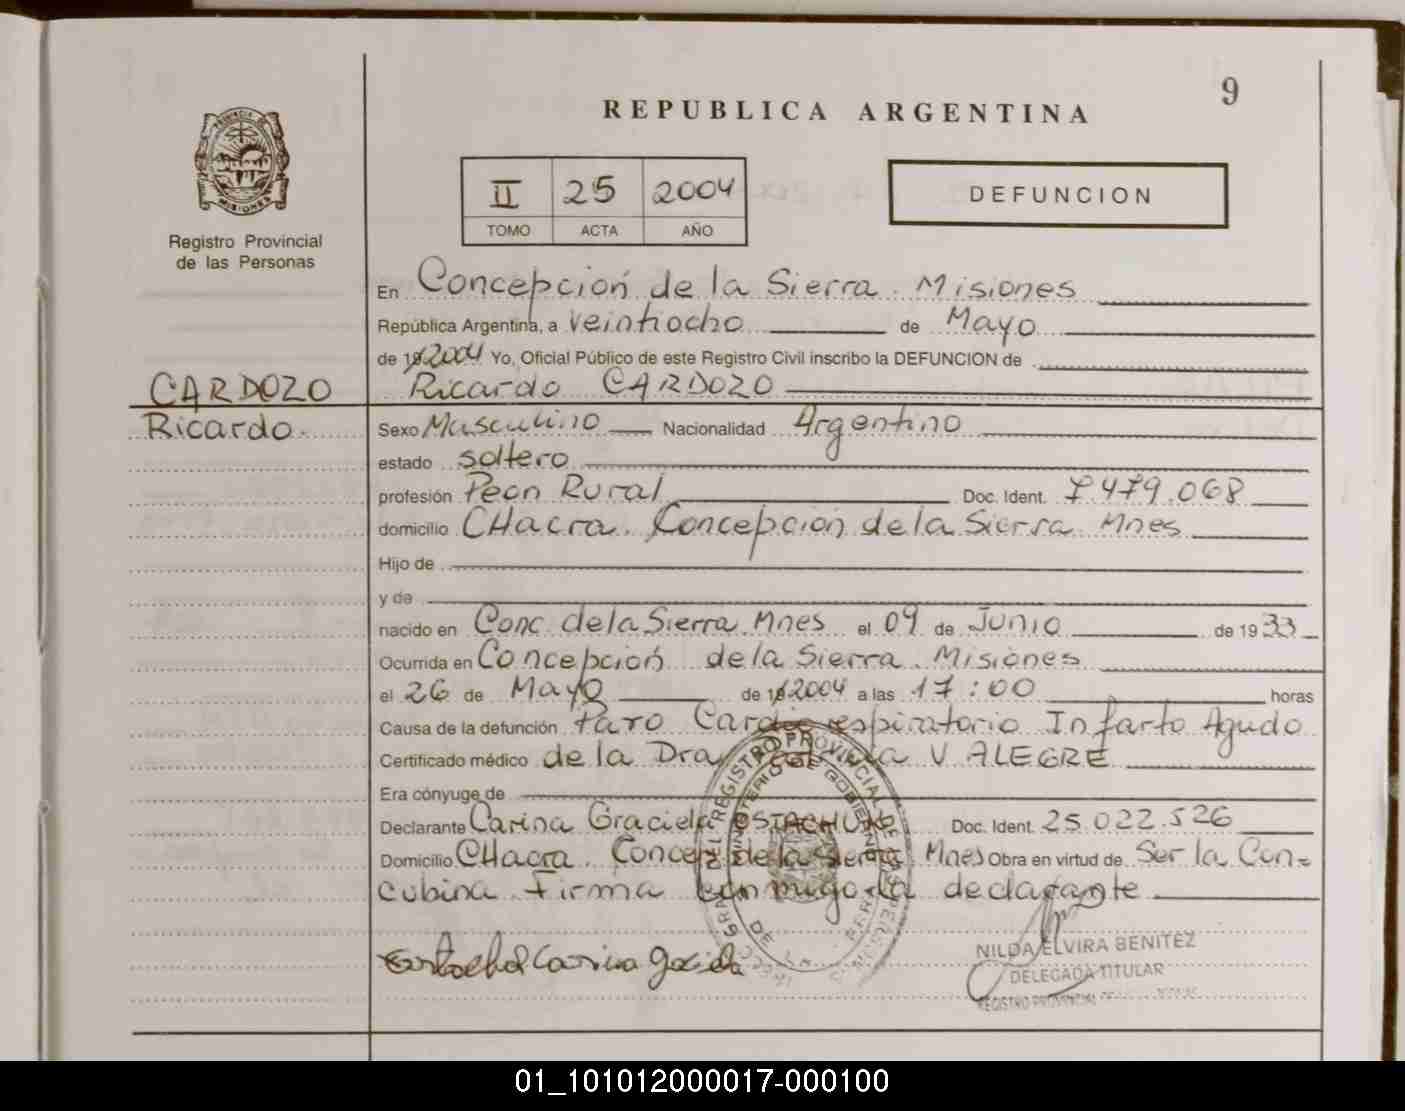 9
REPUBLICA ARGENTINA
PROVINCIA DE
MISIONES
Registro Provincial
de las Personas
II 25 2004
TOMO ACTA AÑO
DEFUNCION
En Concepción de la Sierra. Misiones
República Argentina, a veintiocho de Mayo
de 19 2004 Yo, Oficial Público de este Registro Civil inscribo la DEFUNCION de
CARDOZO
Ricardo.
Ricardo CARDOZO
Sexo Masculino Nacionalidad Argentino
estado soltero
profesión Peon Rural Doc. Ident. 7.479.068
domicilio CHacra. Concepción de la Sierra. Mnes
Hijo de
y de
nacido en Conc. de la Sierra. Mnes el 09 de Junio de 1933
Ocurrida en Concepción de la Sierra. Misiones
el 26 de Mayo de 19 2004 a las 17:00 horas
Causa de la defunción Paro Cardiorespiratorio Infarto Agudo
Certificado médico de la Dra V. ALEGRE
Era cónyuge de
Declarante Carina Graciela OSTACHUK Doc. Ident. 25.022.526
Domicilio CHacra. Concep. de la Sierra Mnes Obra en virtud de Ser la Con=
cubina. Firma conmigo la declarante
Carina
NILDA ELVIRA BENITEZ
DELEGADA TITULAR
REGISTRO PROVINCIAL
REGISTRO PROVINCIAL DE LAS PERSONAS
MINISTERIO DE GOBIERNO
01_101012000017-000100